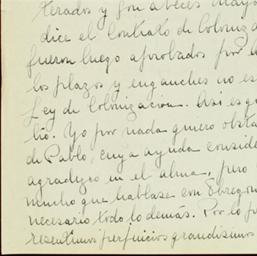 terados y son a veces mayo
dice el Contrato de Coloniza
fueron luego aprobados por e
los plazos y enganches no es
Ley de Colonización. Así es qu
tio. Yo por nada quiero obsta
de Pablo, cuya ayuda conside
agradezco en el alma, pero
mucho que hablase con Obregon
necesario todo lo demás. Por lo p
resentimos perjuicios grandísimos